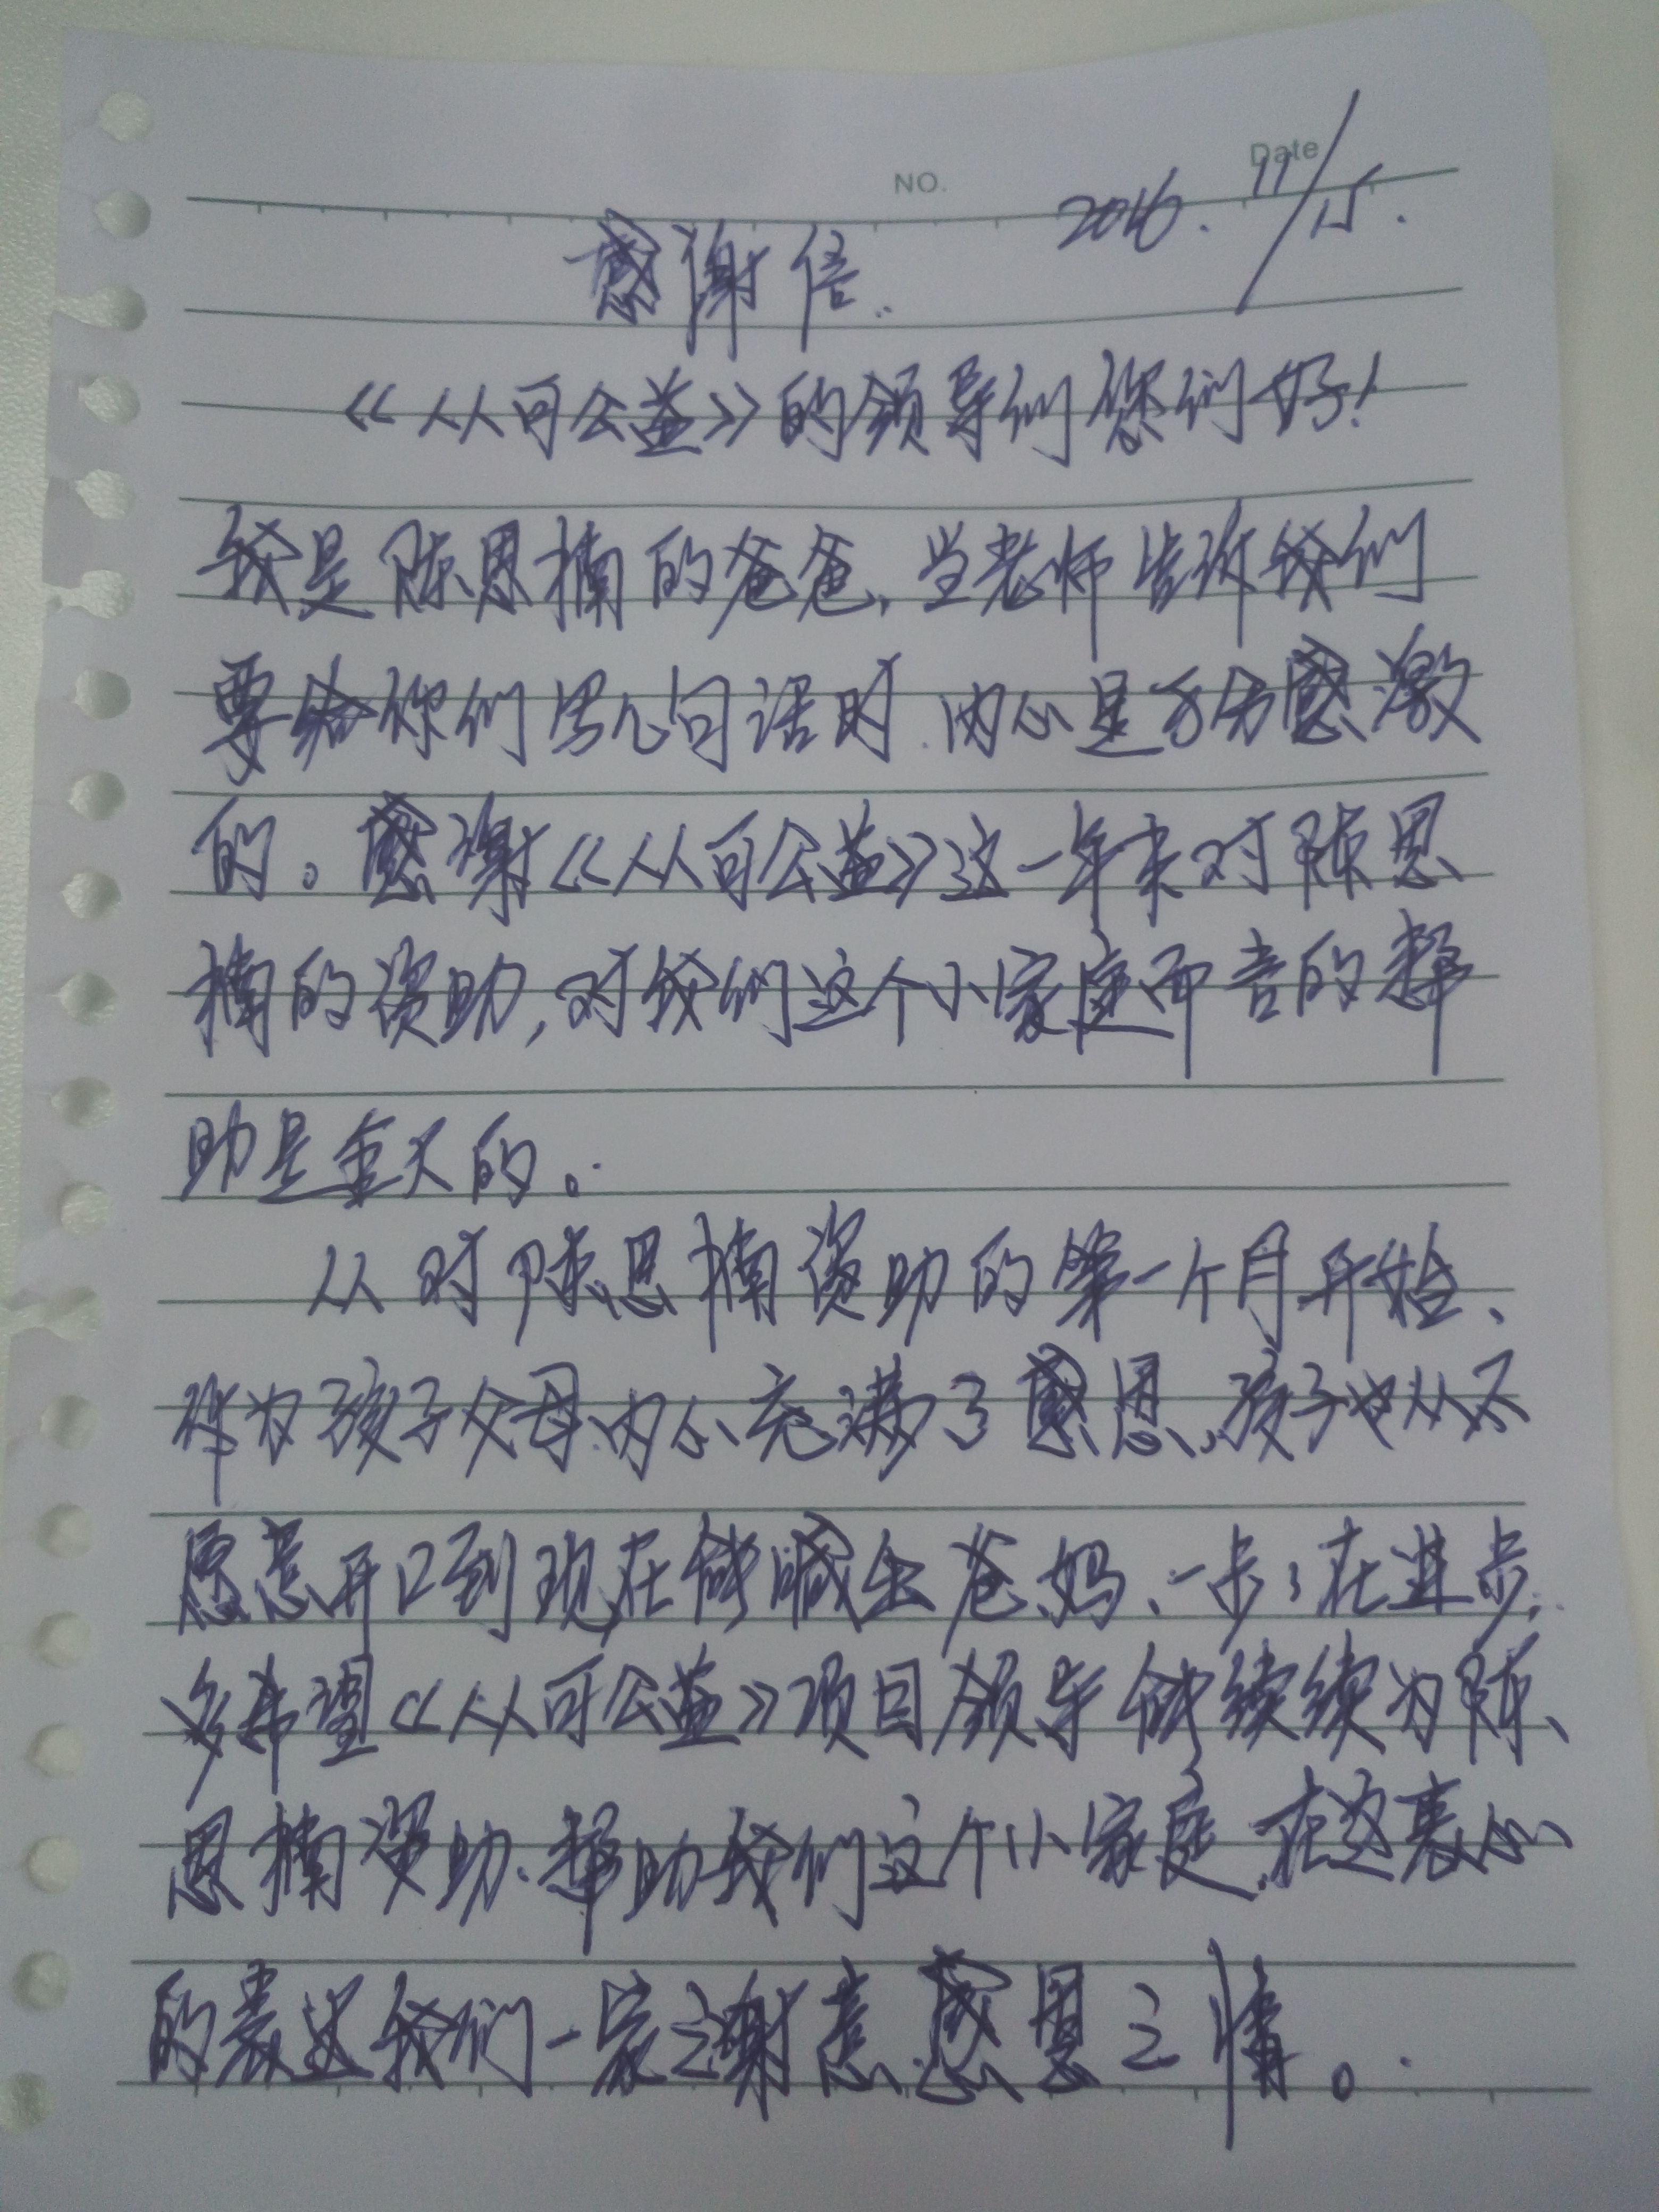 NO.
Date
2016.11/15.
感谢信.
《从可公益》的领导们您们好!
我是陈恩楠的爸爸,当老师告诉我们
要给你们写几句话时.内心是万分感激
的。感谢《从可公益》这一年来对陈恩
楠的资助,对我们这个小家庭而言的帮
助是重大的。
从对陈恩楠资助的第一个月开始、
作为孩子父母内心充满了感恩,孩子也从不
愿意开口到现在能喊出爸妈、一步步在进步.
多希望《从可公益》项目领导能续续为陈、
恩楠资助.帮助我们这个小家庭.在这衷心
的表达我们一家之谢意感恩之情。